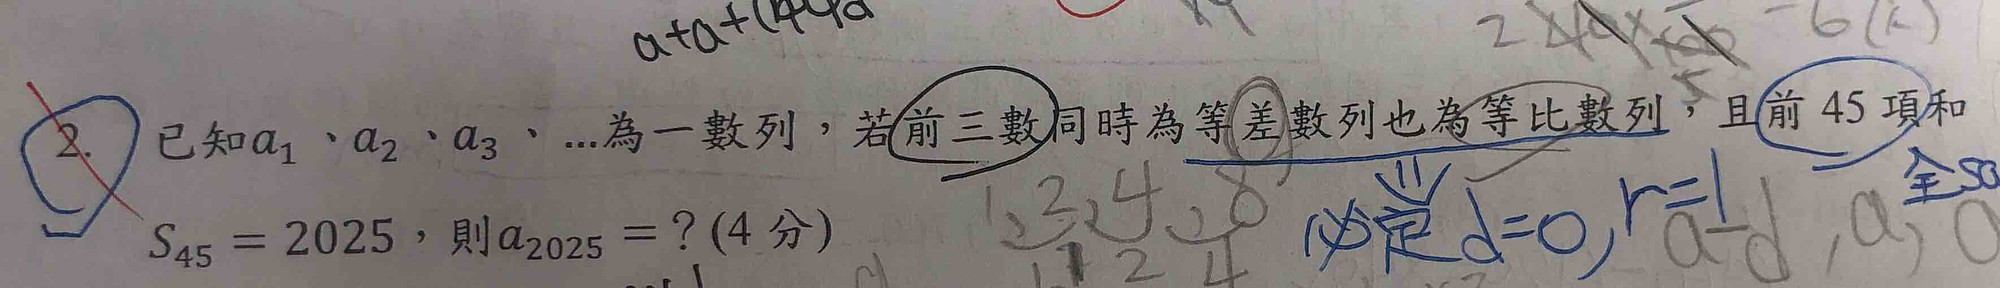 a+a+(
2. 已知a₁、a₂、a₃、...為一數列，若前三數同時為等差數列也為等比數列，且前 45 項和
1,2,4,8
必定d=0, r=1
1 2 4
a-d, a,
S₄₅ = 2025，則a₂₀₂₅ = ? (4 分)